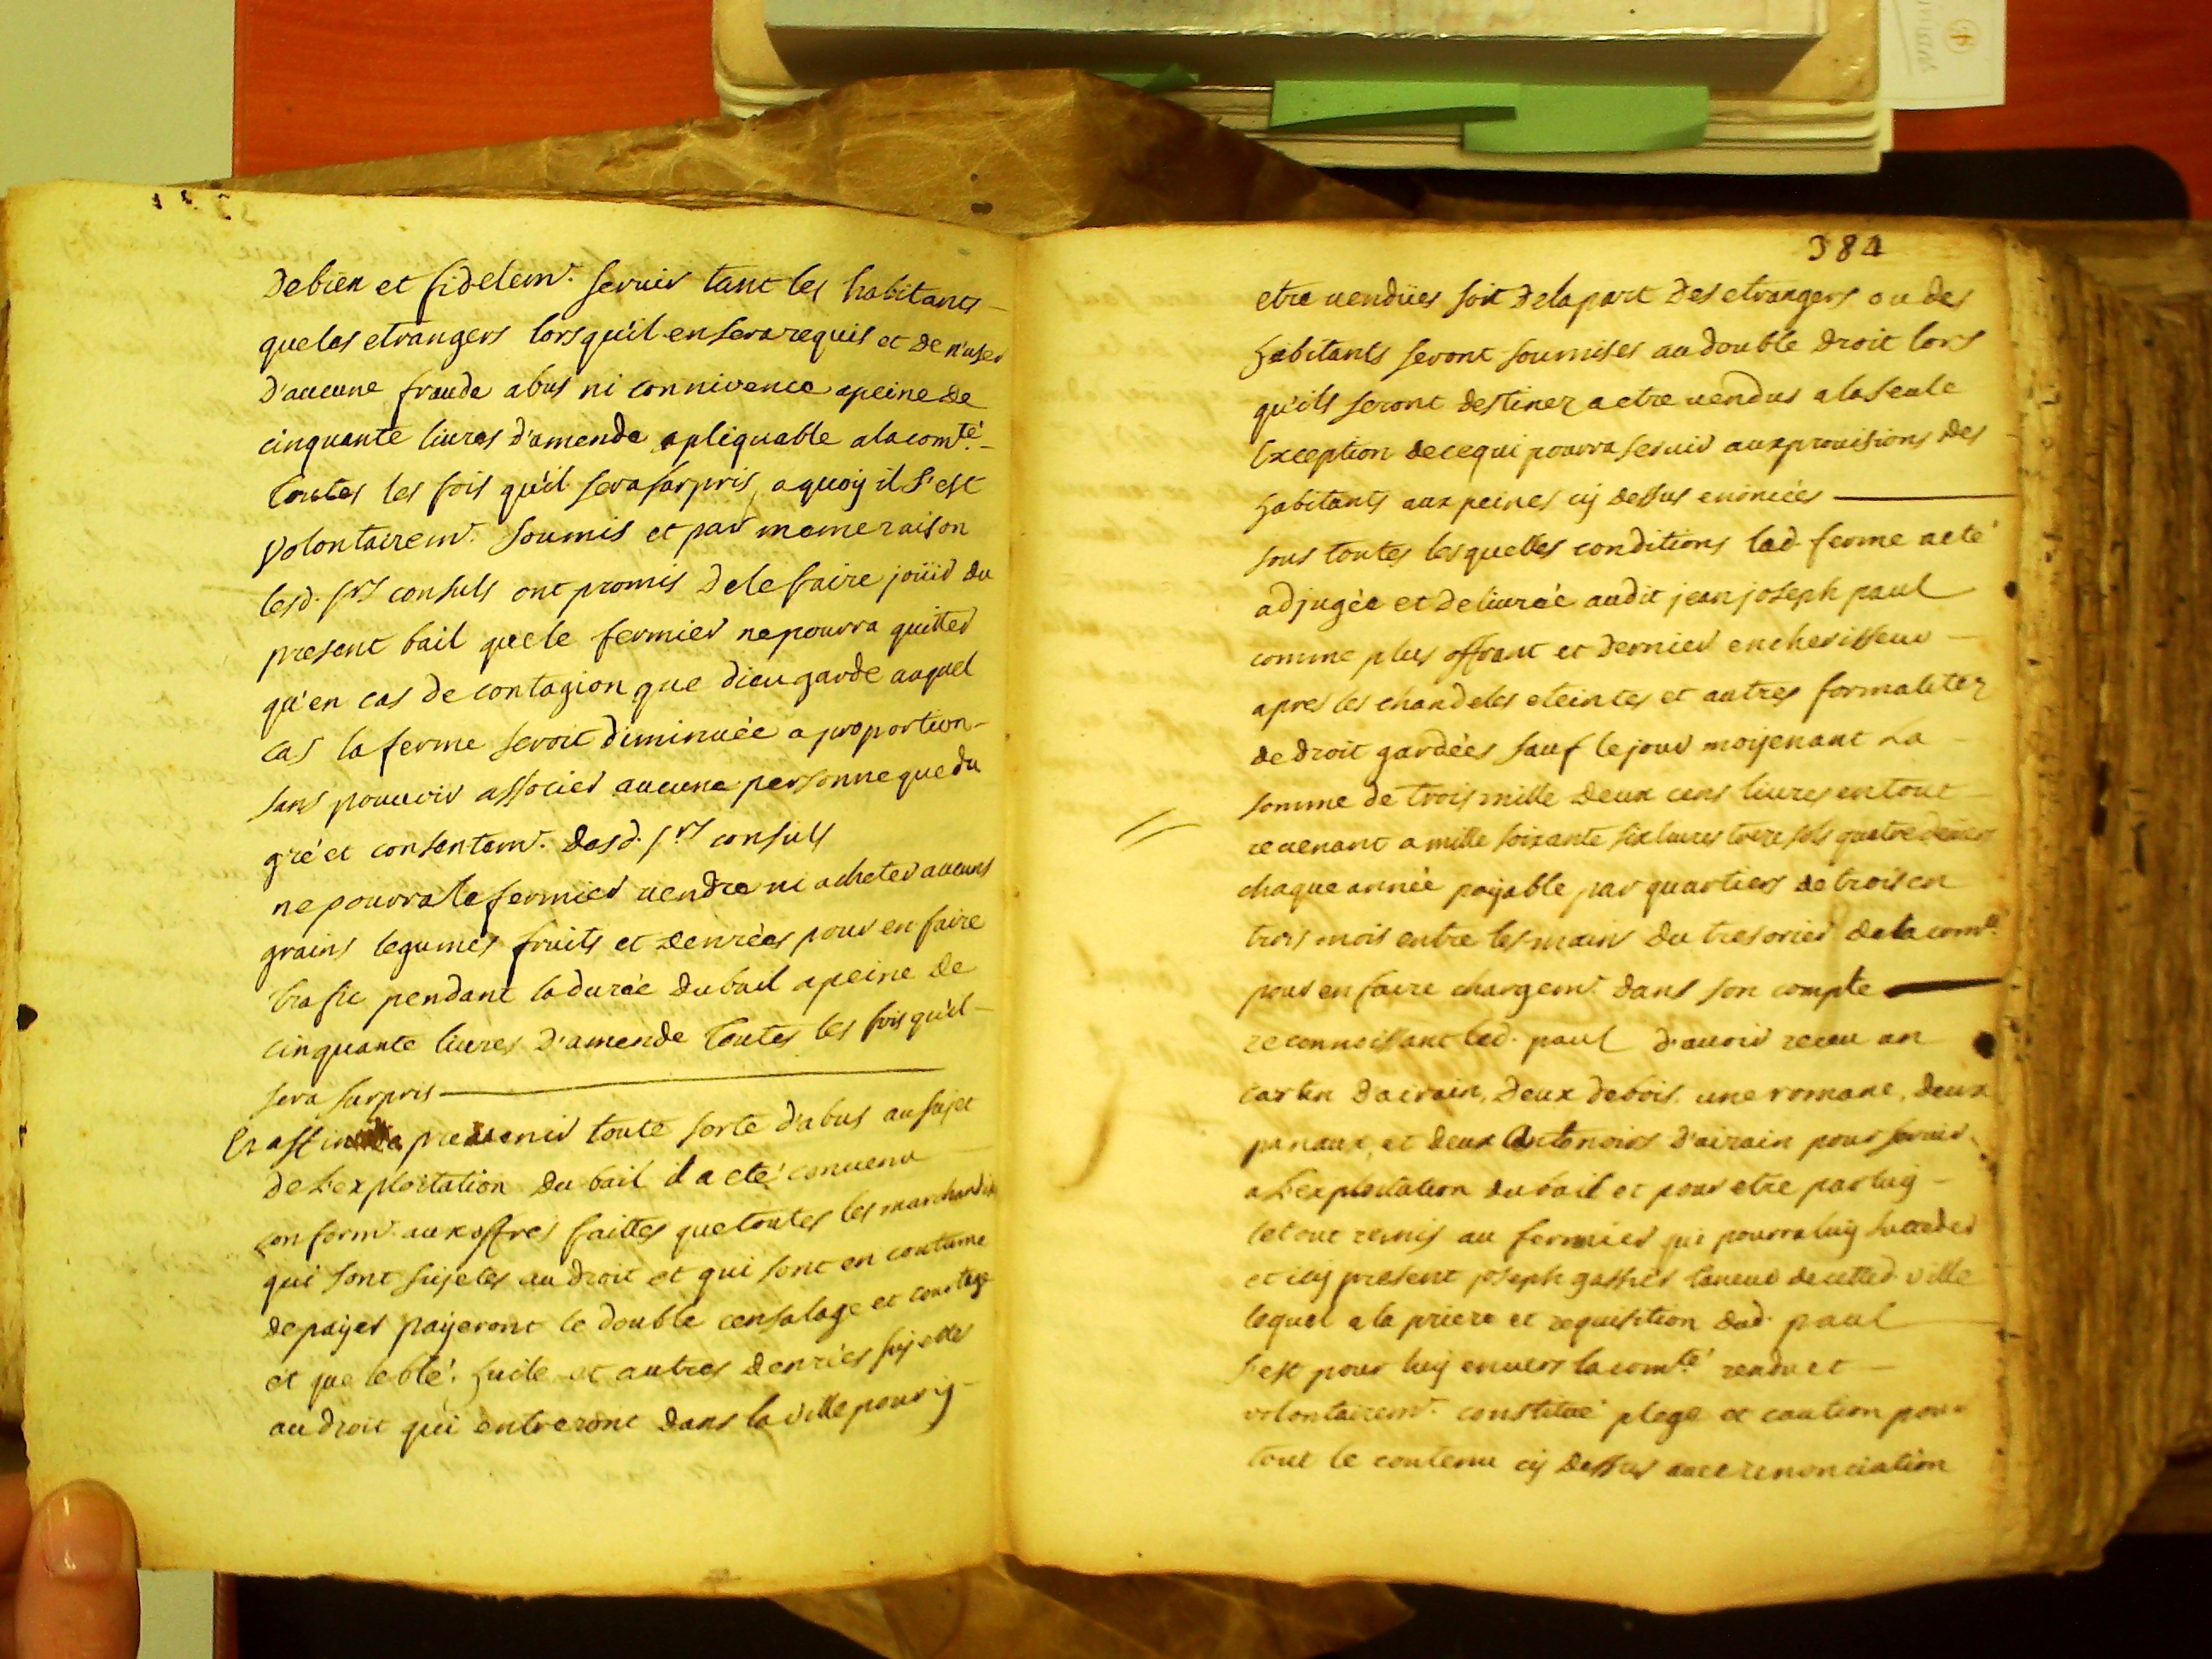 de bien et fidelemt. servir tant les habitants
que les etrangers lorsqu'il en sera requis et de n'user
d'aucune fraude abus ni connivence a peine de
cinquante livres d'amende apliquable a la comté.
toutes les fois qu'il sera surpris, a quoy il s'est
volontairemt. soumis et par meme raison
lesd. srs consuls ont promis de le faire joüir du
present bail que le fermier ne pourra quitter
qu'en cas de contagion que dieu garde auquel
cas la ferme seroit diminuée a proportion
sans pouvoir associer aucune personne que du
gré et consentemt. desd. srs consuls
ne pourra le fermier vendre ni acheter aucuns
grains legumes fruits et denrées pour en faire
trafic pendant la durée du bail a peine de
cinquante livres d'amende toutes les fois qu'il
sera surpris
Et affin de prevenir toute sorte d'abus au sujet
de L'exploitation du bail il a eté convenu
conformt. aux offres faittes que toutes les marchandises
qui sont sujetes au droit et qui sont en coutume
de payer payeront le double censalage et courtage
et que le blé. huile et autres denrées sujettes
au droit qui entreront dans la ville pour y
384
etre vendües soit de la part des etrangers ou des
habitants seront soumises au double droit lors
qu'ils seront destinez a etre vendus a la seule
Exception de ce qui pourra servir aux provisions des
habitants aux peines cy dessus enoncées
sous toutes lesquelles conditions lad. ferme a eté
adjugée et delivrée audit jean joseph paul
comme plus offrant et dernier encherisseur
apres les chandeles eteintes et autres formalitez
de droit gardées sauf le jour moyenant La
somme de trois mille deux cens livres en tout
revenant a mille soixante six livres treze sols quatre deniers
chaque année payable par quartiers de trois en
trois mois entre les mains du tresorier de la comté.
pour en faire chargemt. dans son compte
reconnoissant led. paul d'avoir receu un
d'airain, deux de bois. une romane, deux
panaux, et deux Antonoirs d'airain pour servir
a L'exploitation du bail et pour etre par luy
le tout remis au fermier qui pourra luy succeder
et icy present joseph taneur de cetted. ville
lequel a la priere et requisition dud. paul
s'est pour luy envers la comté rendu et
volontairemt. constitué plege et caution pour
tout le contenu cy dessus avec renonciation